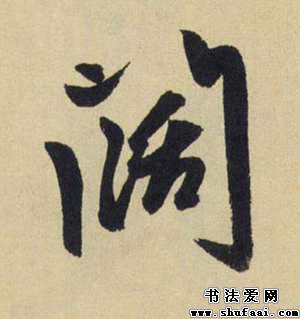 阔
书法爱网
www.shufaai.com